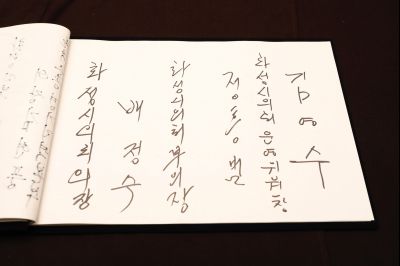 화성시의회의장
배정수
화성시의회부의장
정흥범
화성시의회운영위원장
김영수